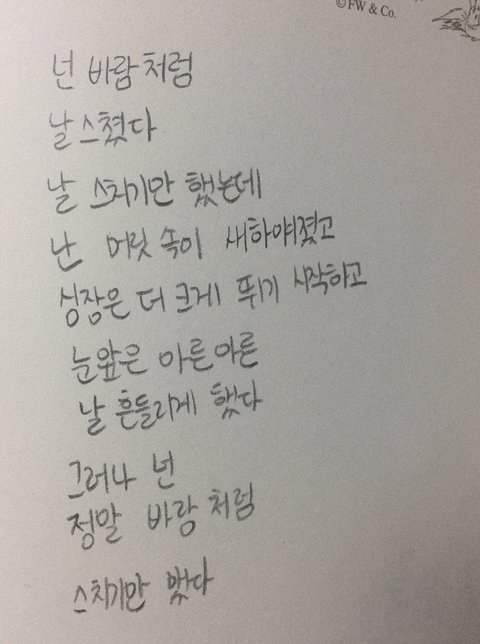 ©FW & Co.
넌 바람처럼
날 스쳤다
날 스치기만 했는데
난 머릿 속이 새하얘졌고
심장은 더 크게 뛰기 시작하고
눈앞은 아른아른
날 흔들리게 했다
그러나 넌
정말 바람처럼
스치기만 했다